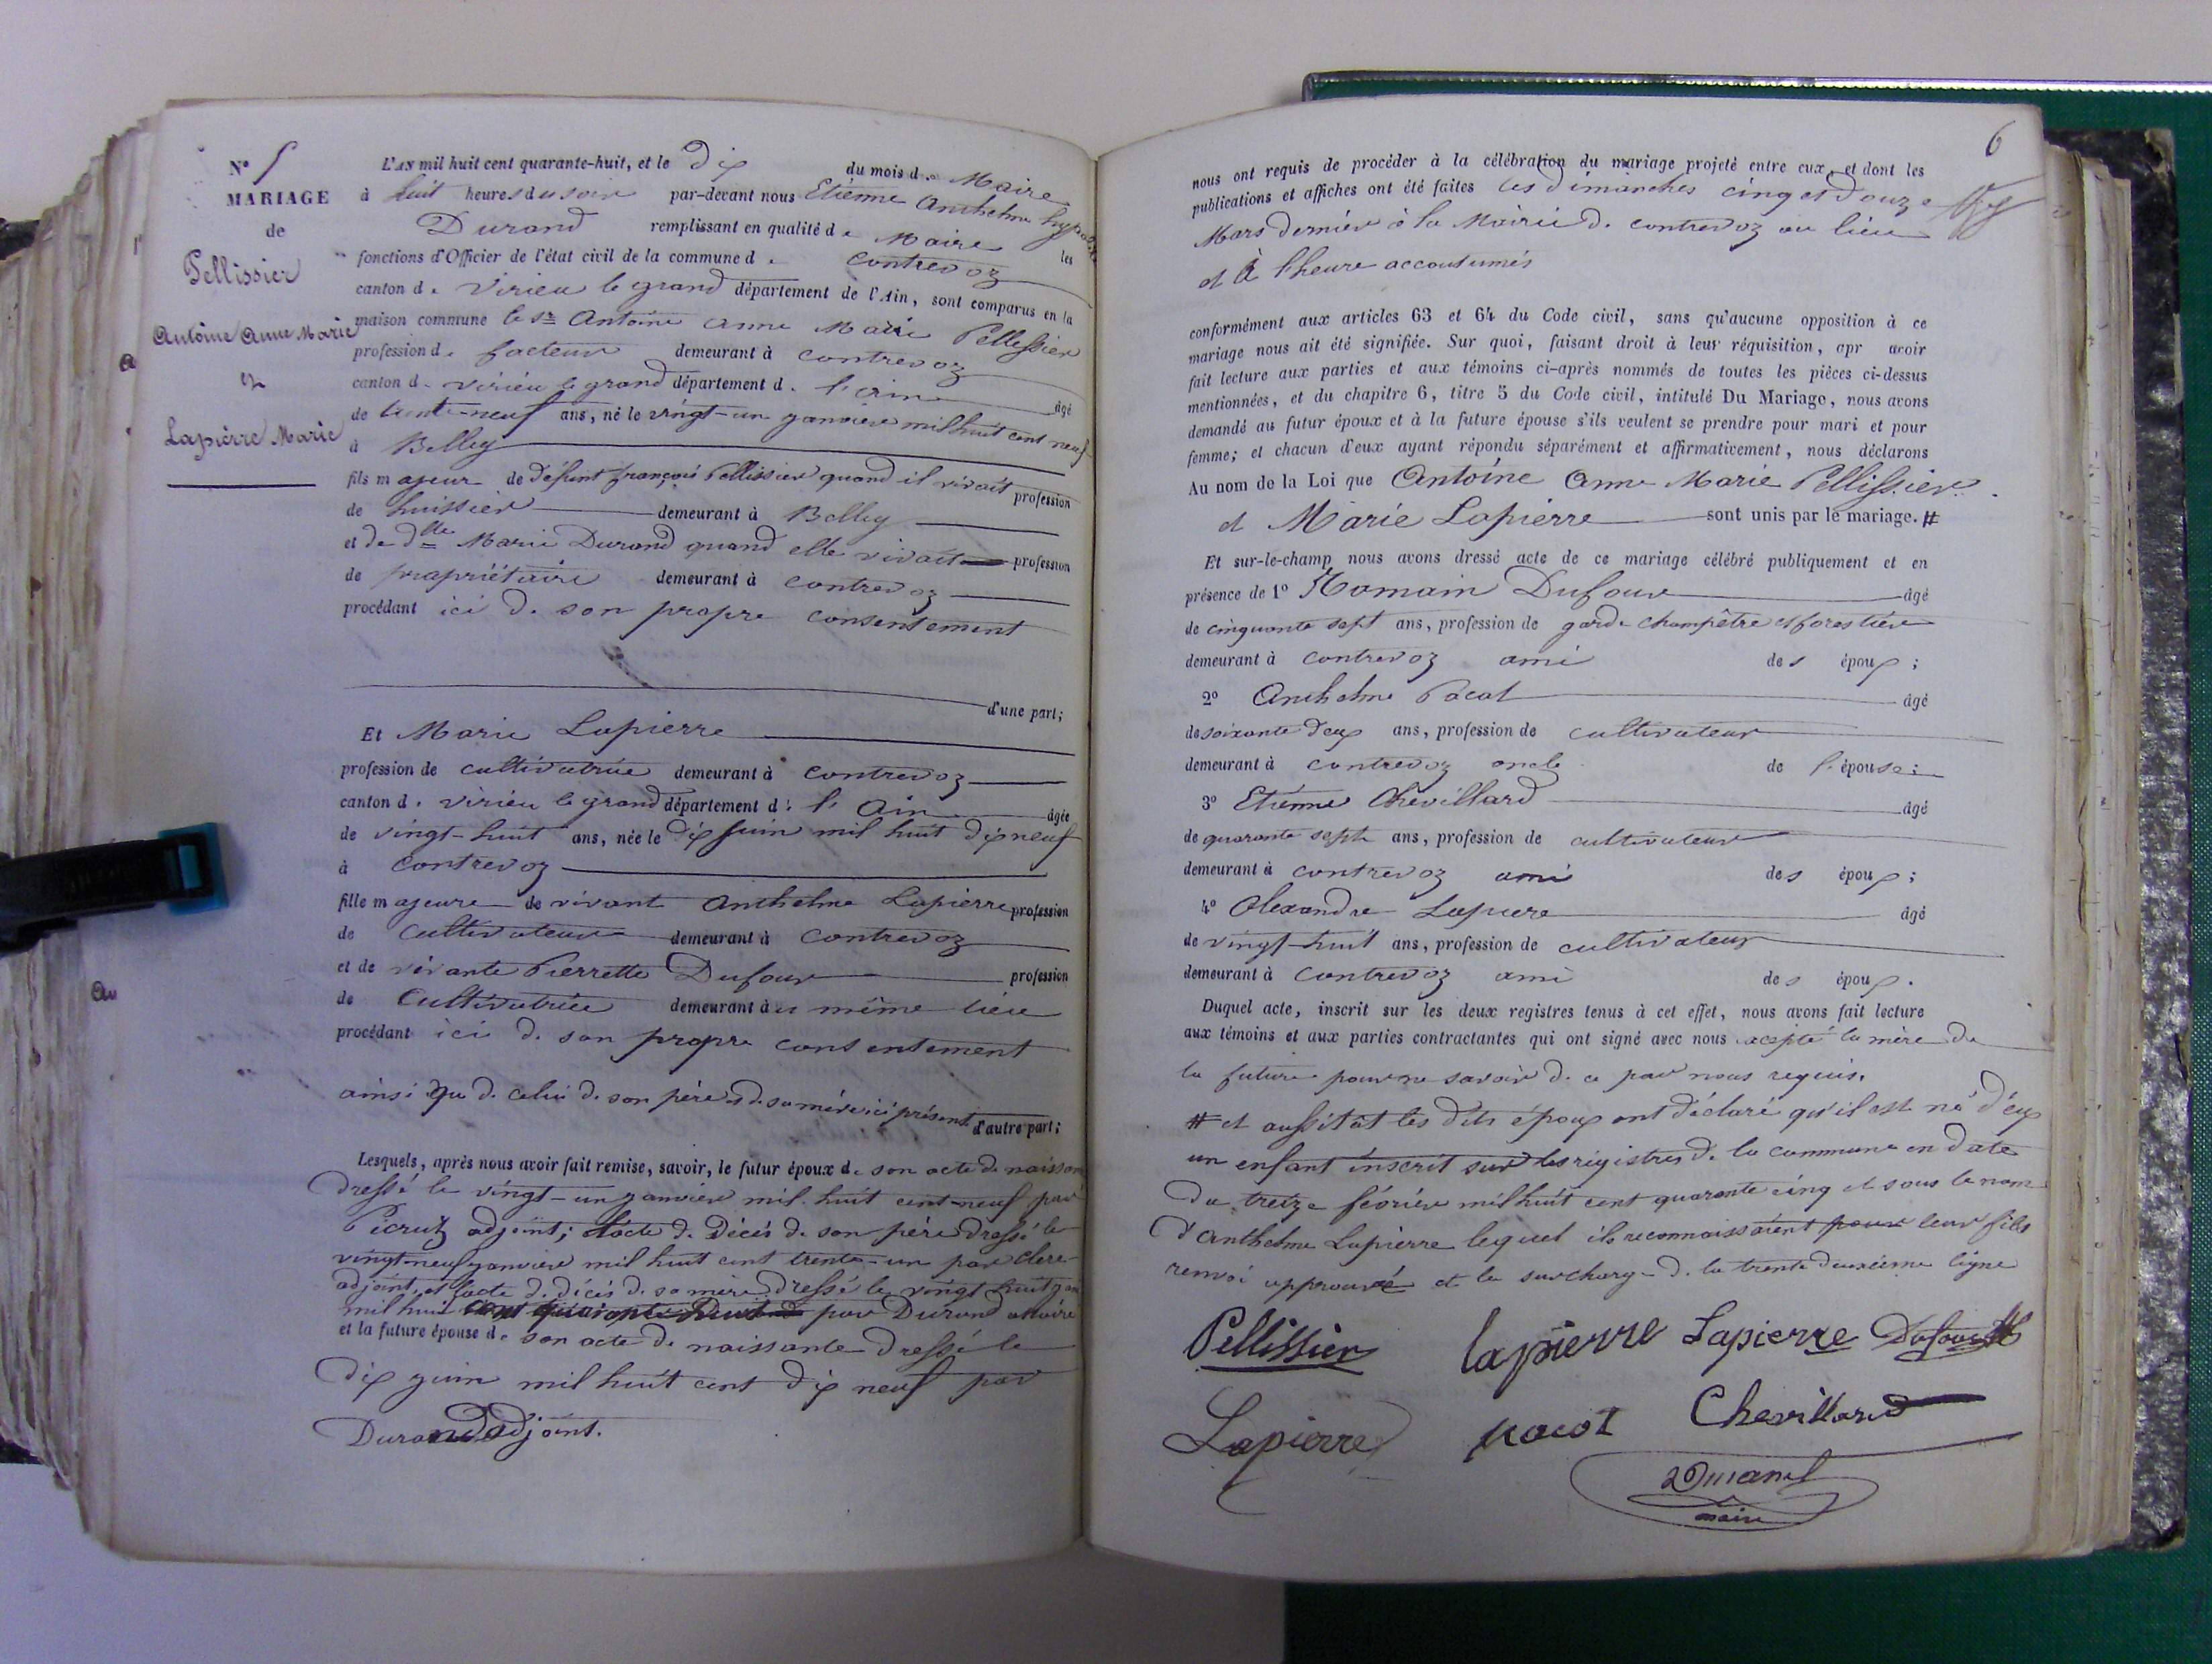 N° 5
MARIAGE
de
Pellissier
Antoine Anne Marie
et
Lapierre Marie
L'AN mil huit cent quarante-huit, et le Dix du mois de Maire
à huit heures du soir par-devant nous Etienne Anthelme
Durand remplissant en qualité de Maire les
fonctions d'Officier de l'état civil de la commune de Contrevoz
canton de Virieu le grand département de l'Ain, sont comparus en la
maison commune le Sr Antoine Anne Marie Pellissier
profession de facteur demeurant à Contrevoz
canton de Virieu le grand département de l'Ain âgé
de trente-neuf ans, né le vingt-un janvier mil huit cent neuf
à Belley
fils majeur de défunt françois Pellissier quand il vivait profession
de huissier demeurant à Belley
et de dlle Marie Durand quand elle vivait profession
de propriétaire demeurant à Contrevoz
procédant ici de son propre consentement
d'une part;
Et Marie Lapierre
profession de cultivatrice demeurant à Contrevoz
canton de Virieu le grand département de l'Ain âgée
de vingt-huit ans, née le dix juin mil huit dix neuf
à Contrevoz
fille majeure de vivant Anthelme Lapierre profession
de Cultivateur demeurant à Contrevoz
et de vivante Pierrette Dufour profession
de Cultivatrice demeurant au même lieu
procédant ici de son propre consentement
ainsi que de celui de son père et de sa mère ici présent d'autre part;
Lesquels, après nous avoir fait remise, savoir, le futur époux de son acte de naissan
dressé le vingt-un janvier mil huit cent-neuf par
adjoint; l'acte de Décès de son père dressé le
vingt-neuf janvier mil huit cent trente-un par Clerc
adjoint, et l'acte de décès de sa mère dressé le vingt huit
mil huit cent quarante huit par Durand maire
et la future épouse de son acte de naissante dressé le
dix juin mil huit cent dix neuf par
Durand adjoint.
6
nous ont requis de procéder à la célébration du mariage projeté entre eux, et dont les
publications et affiches ont été faites les dimanches cinq et douze
Mars dernier à la Mairie de Contrevoz au lieu
et à l'heure accoutumés
conformément aux articles 63 et 64 du Code civil, sans qu'aucune opposition à ce
mariage nous ait été signifiée. Sur quoi, faisant droit à leur réquisition, apr avoir
fait lecture aux parties et aux témoins ci-après nommés de toutes les pièces ci-dessus
mentionnées, et du chapitre 6, titre 5 du Code civil, intitulé Du Mariage, nous avons
demandé au futur époux et à la future épouse s'ils veulent se prendre pour mari et pour
femme; et chacun d'eux ayant répondu séparément et affirmativement, nous déclarons
Au nom de la Loi que Antoine Anne Marie Pellissier
et Marie Lapierre sont unis par le mariage. #
Et sur-le-champ nous avons dressé acte de ce mariage célébré publiquement et en
présence de 1° Romain Dufour âgé
de cinquante sept ans, profession de garde champêtre et forestier
demeurant à Contrevoz ami des époux;
2° Anthelme Pacot âgé
de soixante deux ans, profession de cultivateur
demeurant à Contrevoz oncle de l'épouse;
3° Etienne Chevillard âgé
de quarante sept ans, profession de cultivateur
demeurant à Contrevoz ami des époux;
4° Alexandre Lapierre âgé
de vingt-huit ans, profession de cultivateur
demeurant à Contrevoz ami des époux.
Duquel acte, inscrit sur les deux registres tenus à cet effet, nous avons fait lecture
aux témoins et aux parties contractantes qui ont signé avec nous acepté la mère de
la future pour ne savoir de ce par nous requis.
# et aussitôt les dits époux ont déclaré qu'il est né d'eux
un enfant inscrit sur les régistres de la commune en date
du treize février mil huit cent quarante cinq et sous le nom
d'Anthelme Lapierre lequel ils reconnaissaient pour leur fils
renvoi approuvé et la surcharge de la trente deuxième ligne
Pellissier lapierre Lapierre Dufour
Lapierre pacot Chevillard
Durand
maire